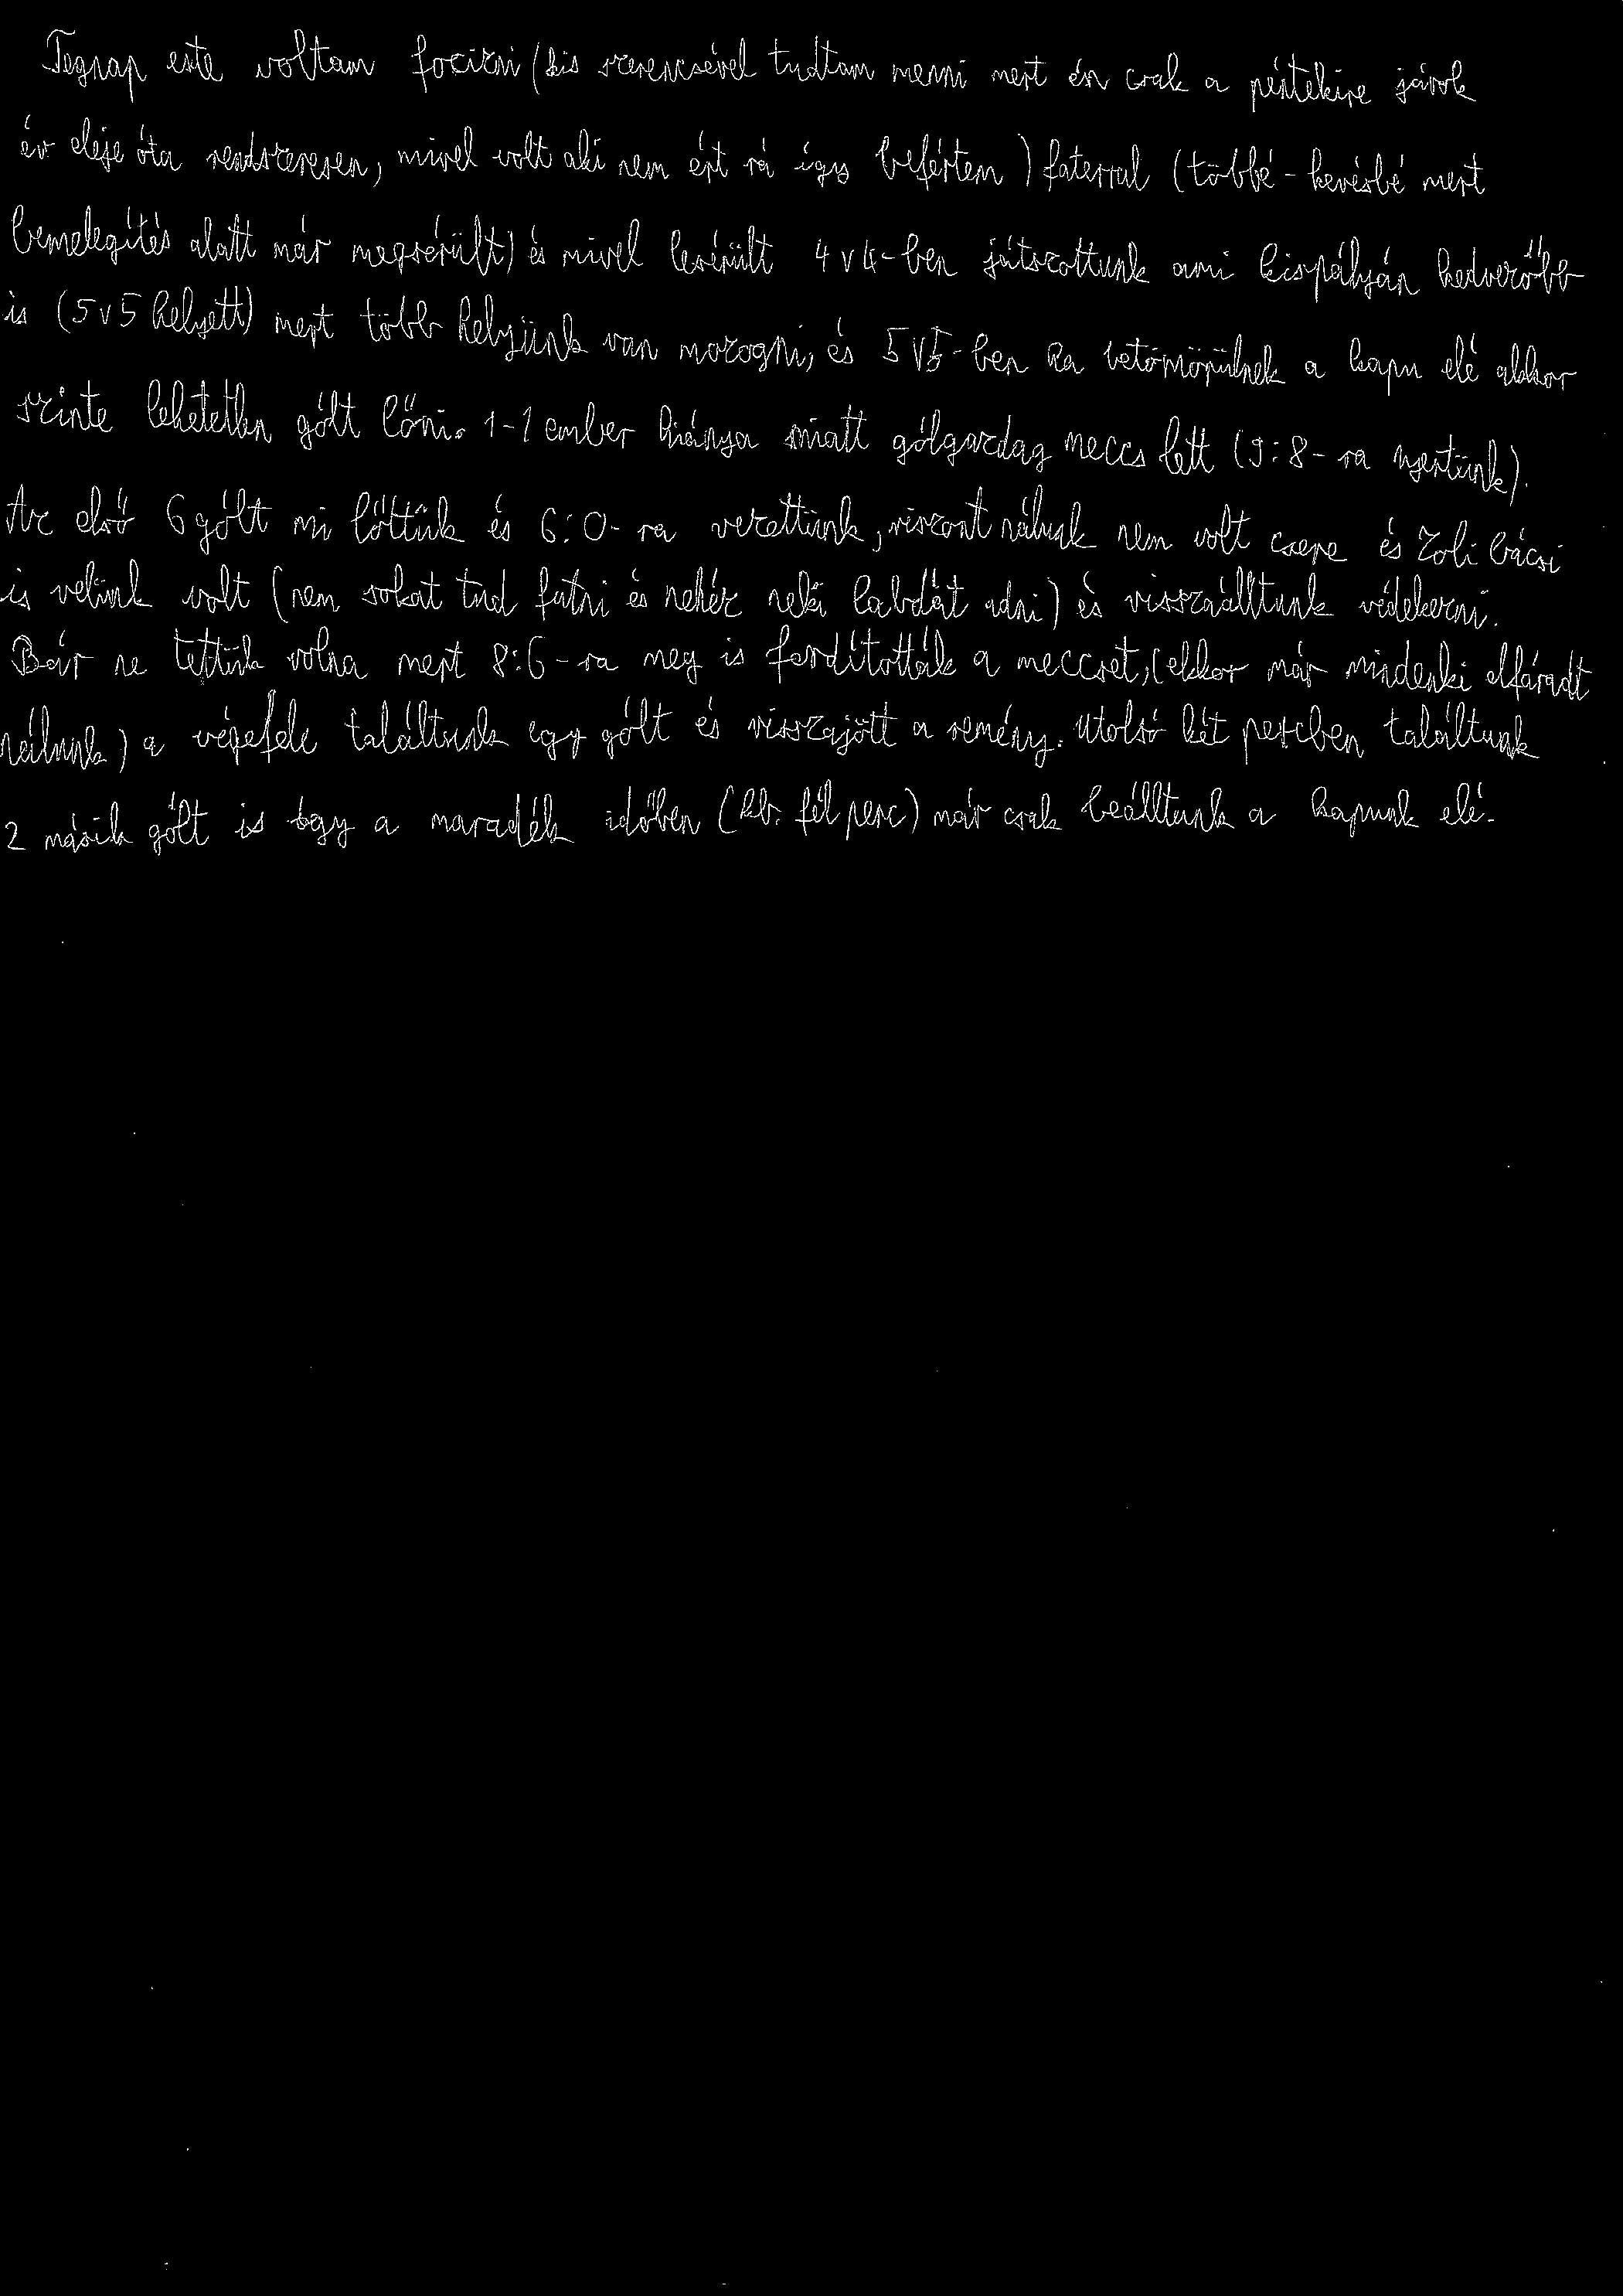 Tegnap este voltam focizni (kis szerencsével tudtam menni mert én csak a péntekire járok
év eleje óta rendszeresen, mivel volt aki nem ért rá így befértem) faterral (többé-kevésbé mert
bemelegítés alatt már megsérült) és mivel lesérült 4v4-ben játszottunk ami kispályán kedvezőbb
is (5v5 helyett) mert több helyünk van mozogni, és 5v5-ben ha betömörülnek a kapu elé akkor
szinte lehetetlen gólt lőni. 1-1 ember hiánya miatt gólgazdag meccs lett (9:8-ra nyertünk).
Az első 6 gólt mi lőttük és 6:0-ra vezettünk, viszont nálunk nem volt csere és Zoli bácsi
is velünk volt (nem sokat tud futni és nehéz neki labdát adni) és visszaálltunk védekezni.
Bár ne tettük volna mert 8:6-ra meg is fordították a meccset, (ekkor már mindenki elfáradt
nálunk) a végefele találtunk egy gólt és visszajött a remény. Utolsó két percben találtunk
2 másik gólt is így a maradék időben (kb. fél perc) már csak beálltunk a kapunk elé.